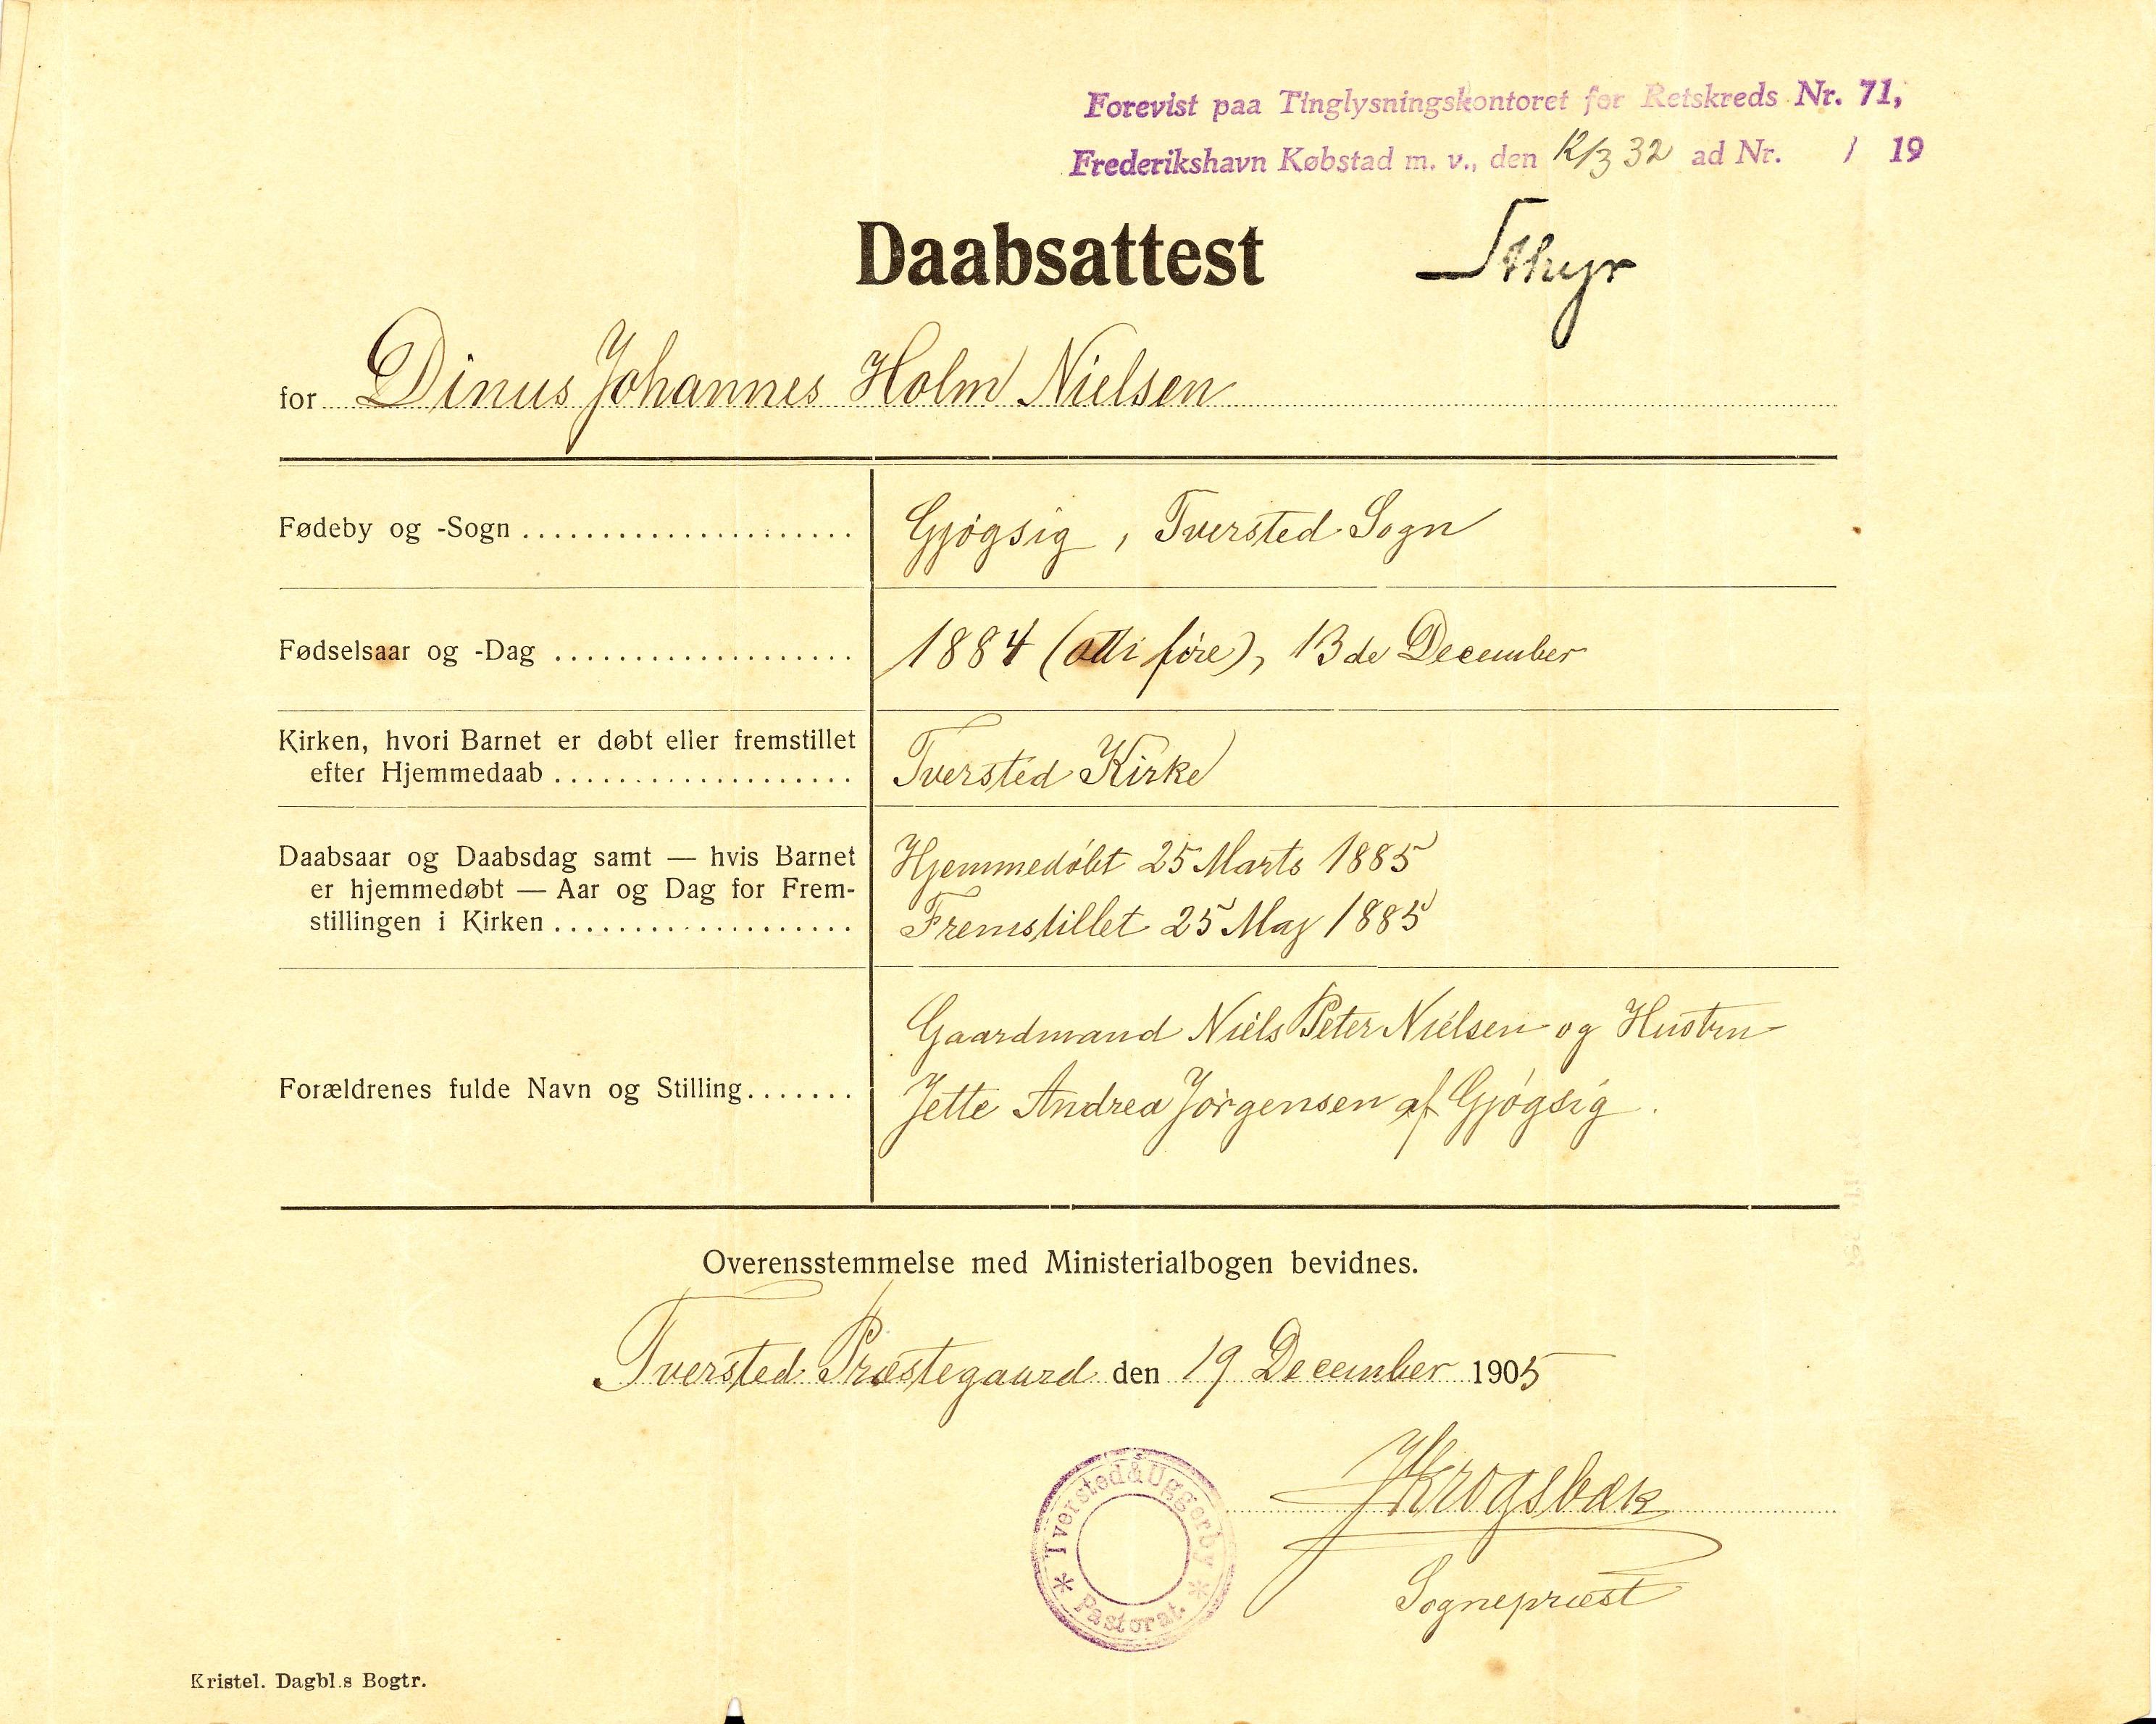 Forevist paa Tinglysningskontoret for Retskreds Nr. 71,
Frederikshavn Købstad m. v., den 12/3 32 ad Nr. / 19
Daabsattest
for Dinus Johannes Holm Nielsen
Fødeby og -Sogn
Gjøgsig, Tversted Sogn
Fødselsaar og -Dag
1884 (otti fire), 13de December
Kirken, hvori Barnet er døbt eller fremstillet
efter Hjemmedaab
Tversted Kirke
Daabsaar og Daabsdag samt — hvis Barnet
er hjemmedøbt — Aar og Dag for Frem-
stillingen i Kirken
Hjemmedøbt 25 Marts 1885
Fremstillet 25 Maj 1885
Forældrenes fulde Navn og Stilling
Gaardmand Niels Peter Nielsen og Hustru
Jette Andrea Jørgensen af Gjøgsig.
Overensstemmelse med Ministerialbogen bevidnes.
Tversted Præstegaard den 19 December 1905
Tversted & Uggerby
* Pastorat. *
JKrogsbæk
Sognepræst
Kristel. Dagbl.s Bogtr.